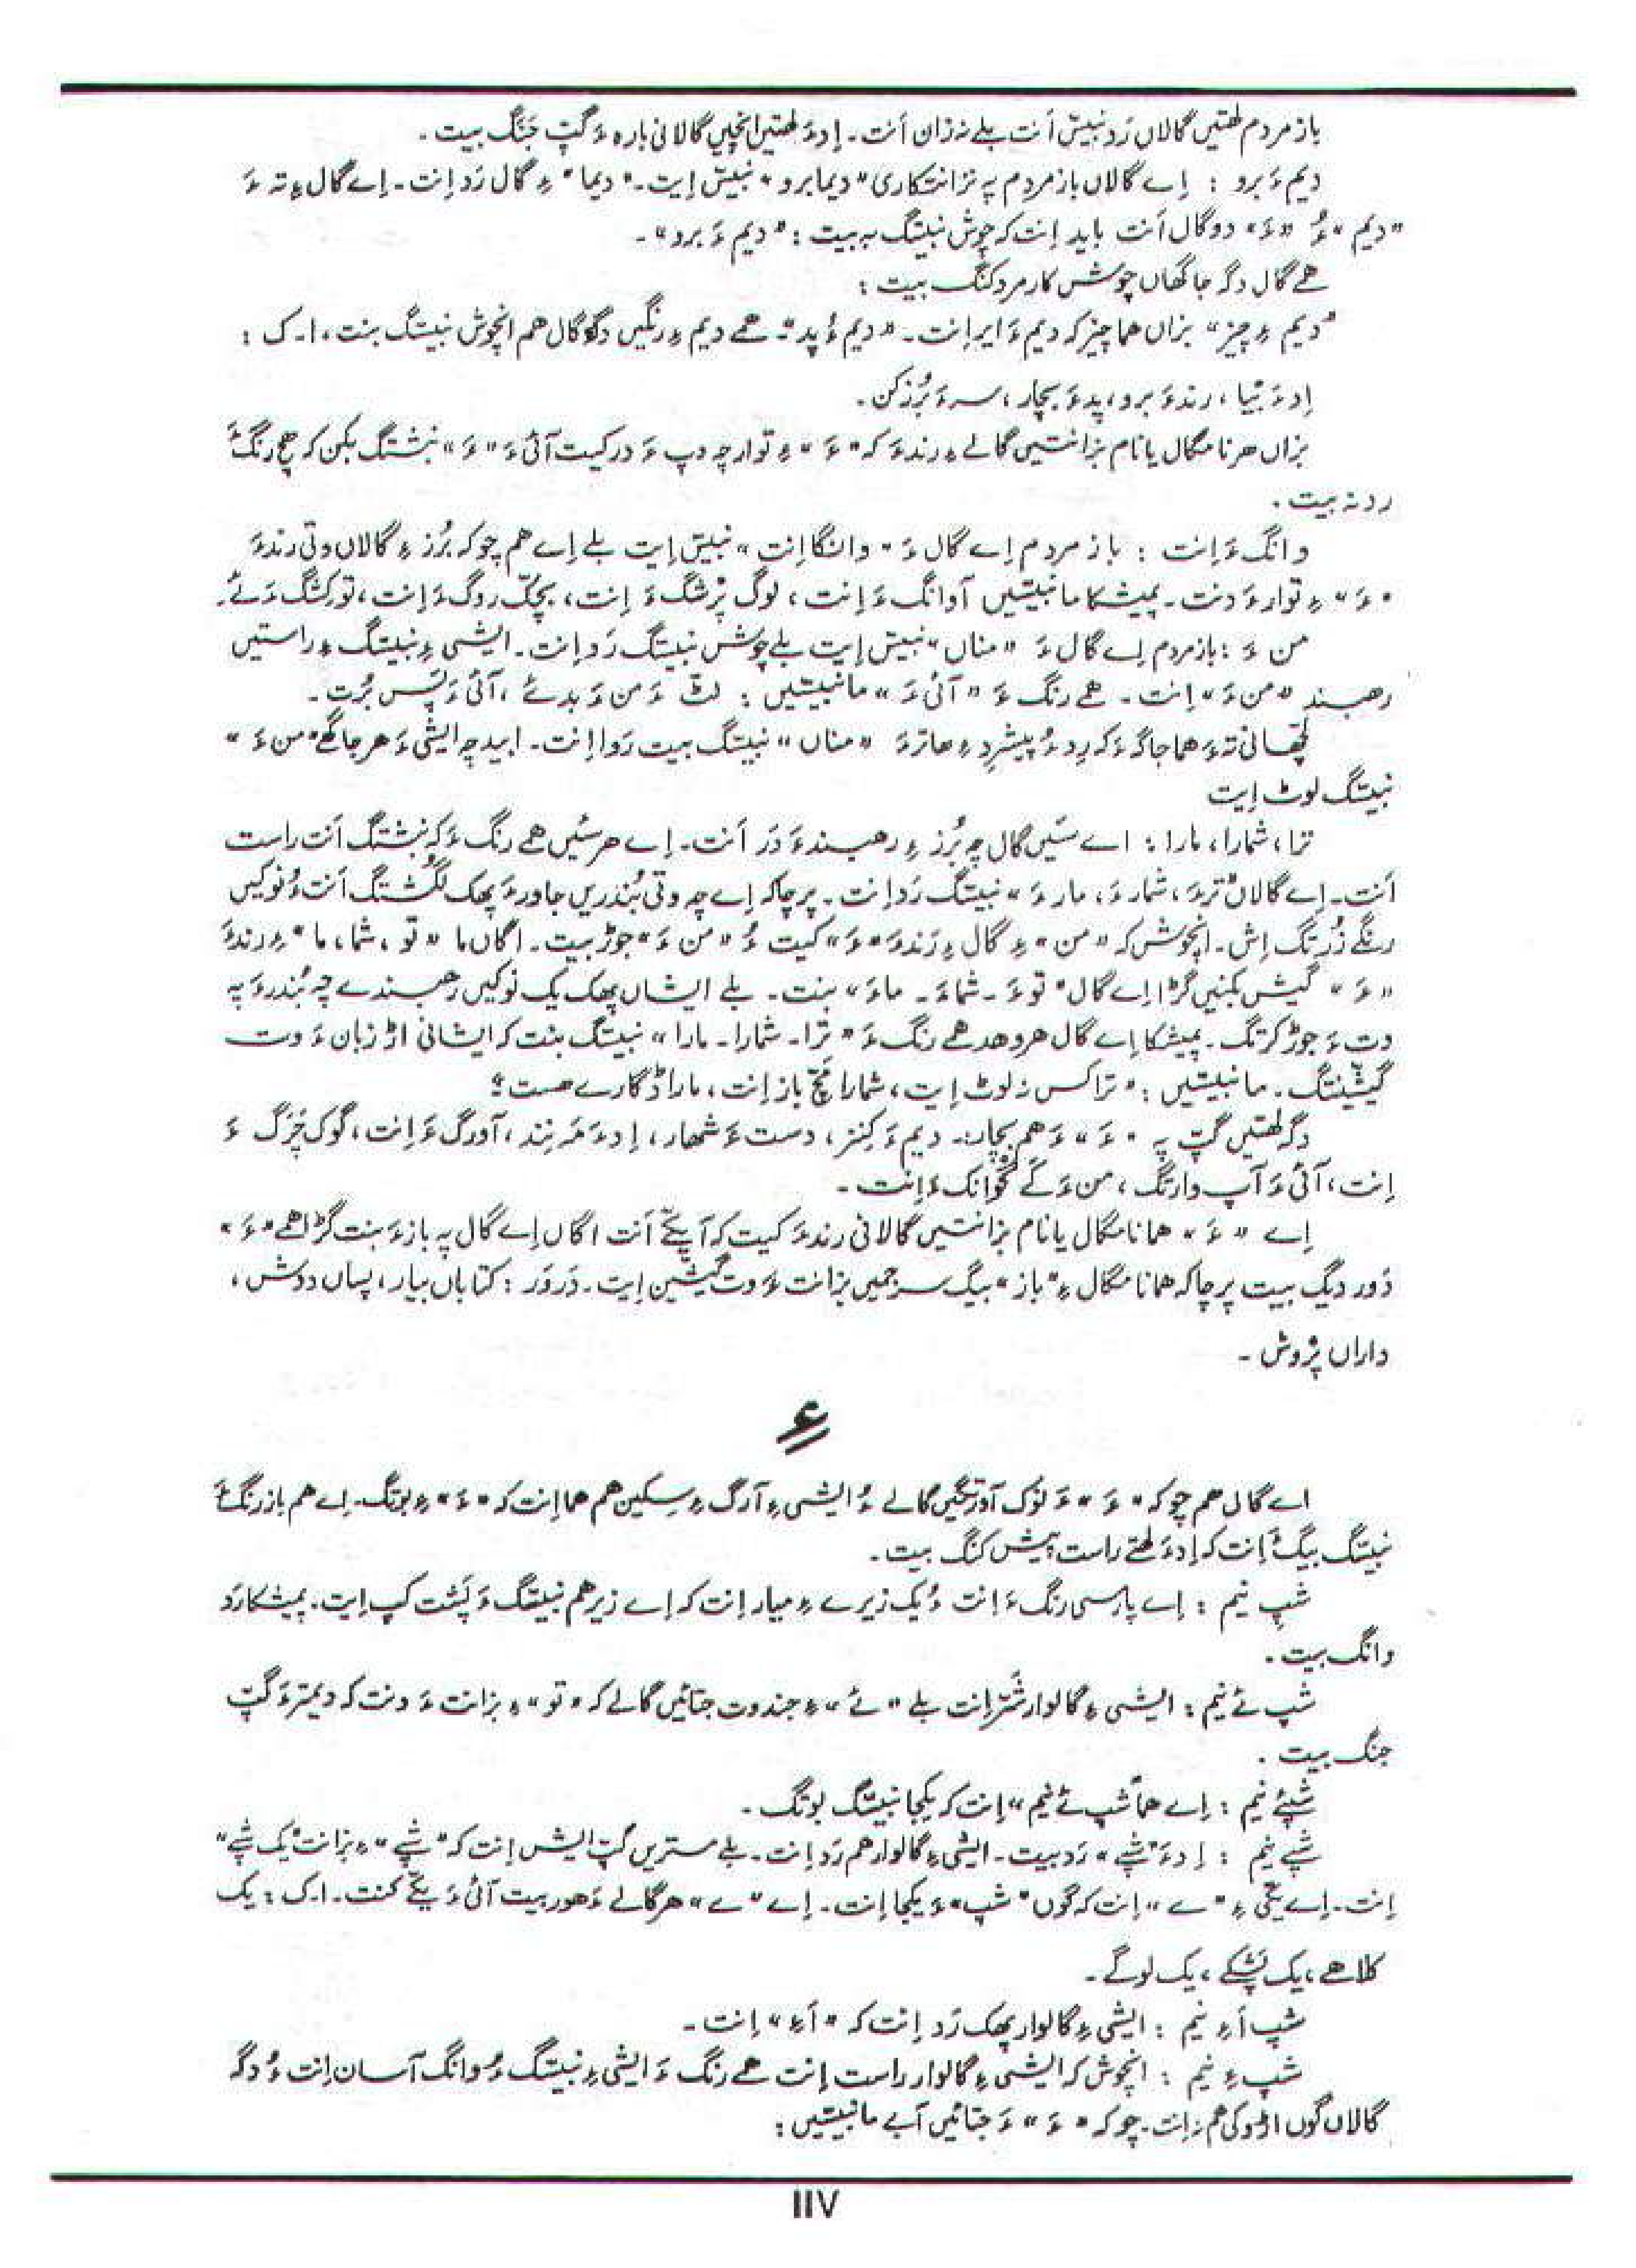 باز مردم لهتیں گالاں رَد نبیس اَنت بلے نہ زان اَنت۔ اِدءَ لهتیں انچیں گالانی بارہ ءَ گپ جَنَگ بیت۔
دیم ءَ برو : اِے گالاں باز مردم پہ نزانتکاری "دیما برو" نبیس اِیت۔ "دیما" ءِ گال رَد اِنت۔ اِے گال ءِ تہ ءَ
"دیم" ءُ "ءَ" دو گال اَنت باید اِنت کہ چوش نبیتگ بہ بیت : "دیم ءَ برو"۔
ھمے گال دگر جاگھاں چوش کارمرد کنگ بیت :
"دیم ءِ چیز" بزاں ھما چیز کہ دیم ءَ ایر اِنت۔ "دیم ءُ پد"۔ ھمے دیم ءِ رنگیں دگہ گال ھم انچوش نبیتگ بنت، ا۔ک :
اِدءَ بیا، رندءَ برو، پدءَ بچار، سرءَ بُرز کن۔
بزاں ھر نامگال یا نام بزانتیں گالے ءِ رندءَ کہ "ءَ" ءِ توار چہ دپ ءَ در کیت آئی ءَ "ءَ" نبشتگ بکن کہ ھچ رنگ ءَ
رد نہ بیت۔
وانگ ءَ اِنت : باز مردم اِے گال ءَ "وانگا اِنت" نبیس اِیت بلے اِے ھم چو کہ بُرز ءِ گالاں وتی رندءَ
"ءَ" ءِ توار ءَ دنت۔ پمیشکا ما نبیسیں آ وانگ ءَ اِنت، لوگ پرُشگ ءَ اِنت، بچک روگ ءَ اِنت، تو کنگ ءَ ئے۔
من ءَ : باز مردم اِے گال ءَ "مناں" نبیس اِیت بلے چوش نبیتگ رَد اِنت۔ ایشی ءِ نبیتگ ءِ راستیں
رھبند "من ءَ" اِنت۔ ھمے رنگ ءَ "آئی ءَ" ما نبیسیں : لٹ ءَ من ءَ بدئے، آئی ءَ پَس بُرت۔
لچھانی تہ ءَ ھما جاگہ ءَ کہ رِد ءُ پیشرِد ءِ ھاترءَ "مناں" نبیتگ بیت رَوا اِنت۔ ابید چہ ایشی ءَ ھر جاگھے "من ءَ"
نبیتگ لوٹ اِیت
ترا، شمارا، مارا : اے سئیں گال چہ بُرز ءِ رھبندءَ دَر اَنت۔ اِے ھر سئیں ھمے رنگ ءَ کہ نبشتگ اَنت راست
اَنت۔ اِے گالاں "ترءَ، شمارءَ، مارءَ" نبیتگ رَد اِنت۔ پرچا کہ اِے چہ وتی بُندریں جاورءَ پھک گُشتگ اَنت ءُ نوکیں
رنگے زُرتگ اِش۔ انچوش کہ "من" ءِ گال ءِ رَندءَ "ءَ" کیت ءُ "من ءَ" جوڑ بیت۔ اگاں ما "تو، شما، ما" ءِ رندءَ
"ءَ" گیش بکنیں گڑا اِے گال "توءَ۔ شماءَ۔ ماءَ" بنت۔ بلے ایشاں پھک یک نوکیں رھبندے چہ بُندرءَ پہ
وت ءَ جوڑ کرتگ۔ پمیشکا اِے گال ھروھد ھمے رنگ ءَ "ترا۔ شمارا۔ مارا" نبیتگ بنت کہ ایشانی اڑ زبان ءَ وت
گیشینتگ۔ ما نبیسیں : "ترا کس نہ لوٹ اِیت، شمارا مچّ باز اِنت، مارا ڈگارے ھست"
دگہ لهتیں گپّ پہ "ءَ" ءَ ھم بچار :۔ دیم ءَ کِنز، دست ءَ شمھار، اِدءَ مَہ نِند، آ ورگ ءَ اِنت، گوک چَرگ ءَ
اِنت، آئی ءَ آپ وارتگ، من ءَ کے گوانک ءَ اِنت۔
اِے "ءَ" ھما نامگال یا نام بزانتیں گالانی رندءَ کیت کہ آ یکّے اَنت اگاں اِے گال پہ بازءَ بنت گڑا ھمے "ءَ"
دَور دیگ بیت پرچا کہ ھما نامگال ءِ "باز" بیگ سرجمیں بزانت ءَ وت گیشین اِیت۔ دَروَر : کتاباں بیار، پساں دوش،
داراں پرُوش۔
ءِ
اے گال ھم چو کہ "ءَ" ءَ نوک آورتگیں گالے ءُ ایشی ءِ آرگ ءِ سکین ھم ھما اِنت کہ "ءَ" ءِ بوتگ۔ اِے ھم باز رنگ ءَ
نبیتگ بیگ ءَ اِنت کہ اِدءَ لهتے راست پیش کنگ بیت۔
شپِ نیم : اِے پارسی رنگ ءَ اِنت ءُ یک زیرے ءِ میار اِنت کہ اِے زیر ھم نبیتگ ءَ پَشت کپ اِیت۔ پمیشکا رَد
وانگ بیت۔
شپ ئے نیم : ایشی ءِ گالوار شَتر اِنت بلے "ئے" ءِ جند وت جتائیں گالے کہ "تو" ءِ بزانت ءَ دنت کہ دیمترءَ گپّ
جنگ بیت۔
شپئے نیم : اِے ھما "شپ ئے نیم" اِنت کہ یکجا نبیتگ بوتگ۔
شپے نیم : اِدءَ "شپے" رَد بیت۔ ایشی ءِ گالوار ھم رَد اِنت۔ بلے مسترین گپّ ایش اِنت کہ "شپے" ءِ بزانت "یک شپے"
اِنت۔ اِے یکّی ءِ "ے" اِنت کہ گوں "شپ" ءَ یکجا اِنت۔ اِے "ے" ھر گالے ءَ ھور بیت آئی ءَ یکّے کنت۔ ا۔ک : یک
کلاھے، یک پشکے، یک لوگے۔
شپ اَءِ نیم : ایشی ءِ گالوار پھک رَد اِنت کہ "اَءِ" اِنت۔
شپ ءِ نیم : انچوش کہ ایشی ءِ گالوار راست اِنت ھمے رنگ ءَ ایشی ءِ نبیتگ ءُ وانگ آسان اِنت ءُ دگہ
گالاں گوں اڑوکی ھم نہ اِنت۔ چو کہ "ءَ" ءَ جتائیں آبے ما نبیسیں :
IIV